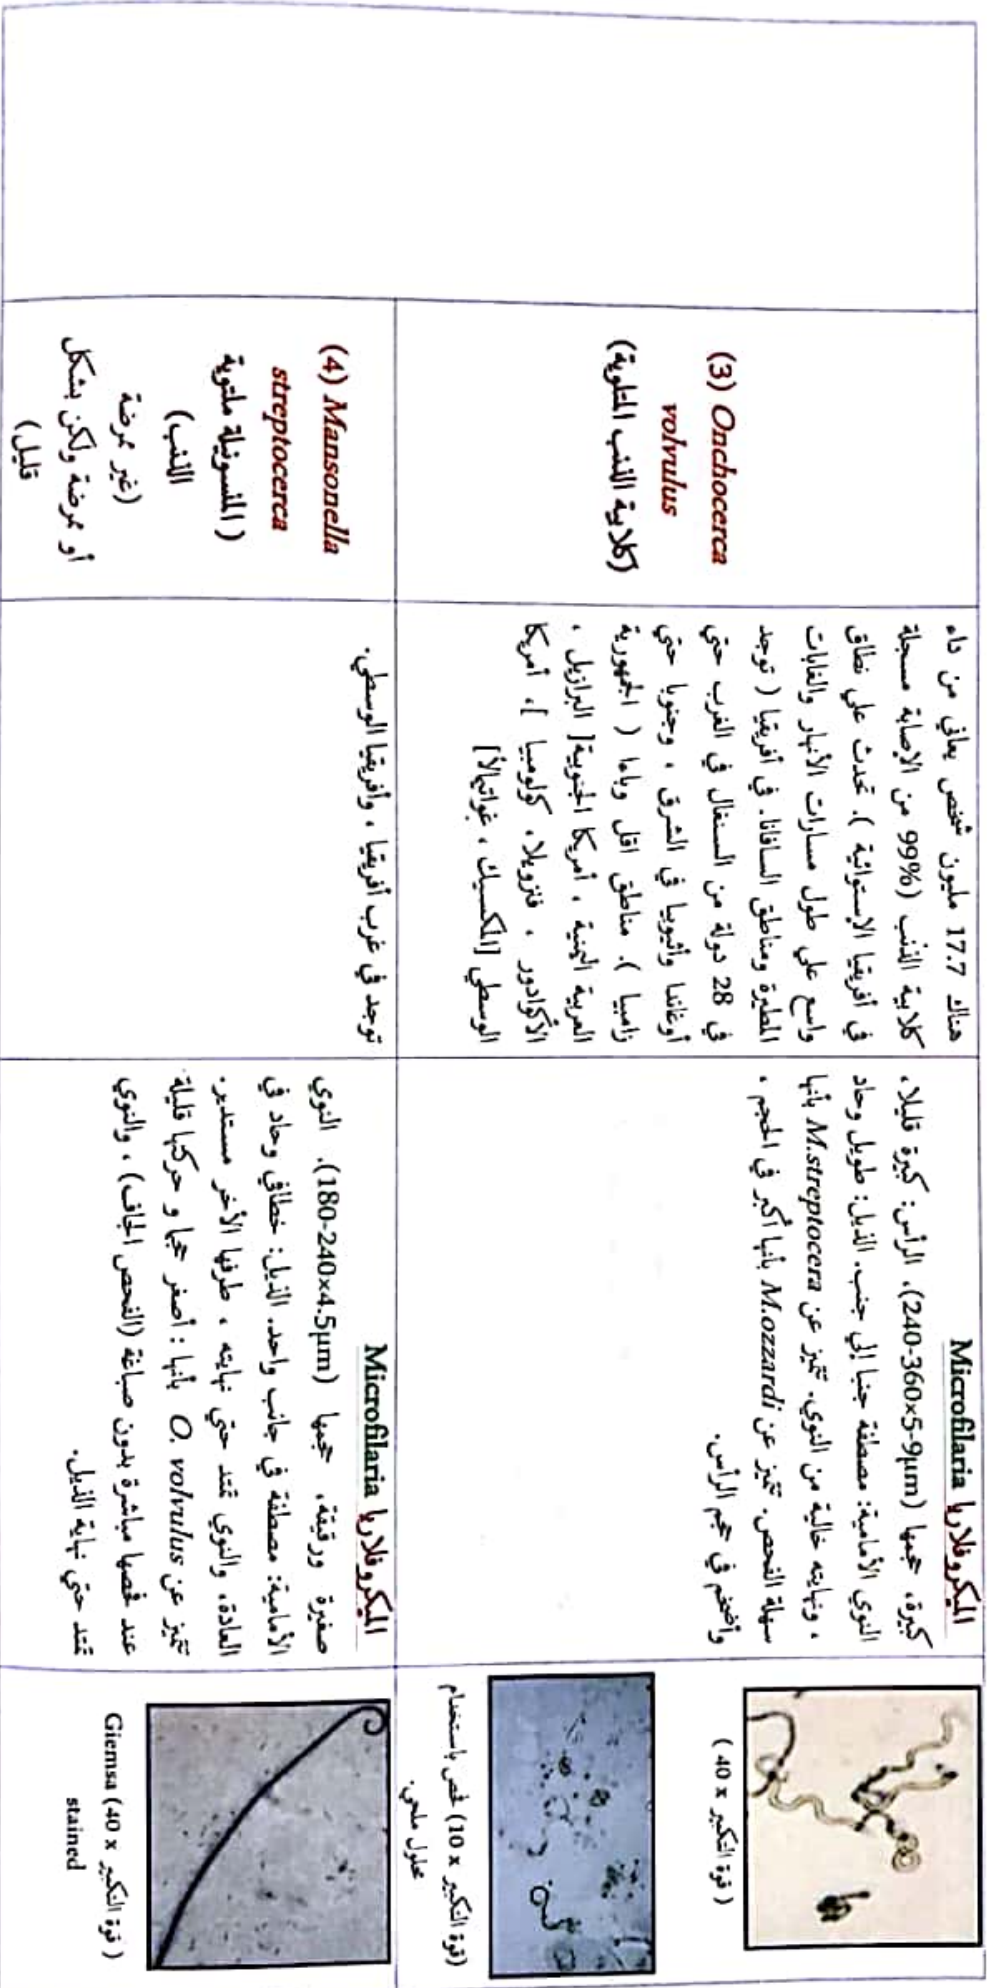 (3) Onchocerca
volvulus
(كلابية الذنب المتلوية)
هناك 17.7 مليون شخص يعاني من داء
كلابية الذنب (99% من الإصابة مسجلة
في أفريقيا الإستوائية ). تحدث علي نطاق
واسع علي طول مسارات الأنهار والغابات
المطيرة ومناطق السافانا. في أفريقيا ( توجد
في 28 دولة من السنغال في الغرب حتي
أوغاندا وأثيوبيا في الشرق ، وجنوبا حتي
زامبيا ). مناطق اقل وباءا ( الجمهورية
العربية اليمنية ، أمريكا الجنوبية[ البرازيل ،
الأكوادور ، فنزويلا، كولومبيا ]، أمريكا
الوسطي [المكسيك ، غواتيمالاً]
الميكروفلاريا Microfilaria
كبيرة، حجمها (240-360x5-9µm). الرأس: كبيرة قليلا،
النوي الأمامية: مصطفة جنبا إلي جنب. الذيل: طويل وحاد
، ونهايته خالية من النوي. تتميز عن M.streptocera بأنها
سهلة الفحص. تتميز عن M.ozzardi بأنها أكبر في الحجم ،
وأضخم في حجم الرأس.
( قوة التكبير 40 x )
(قوة التكبير 10 x) فحص باستخدام
محلول ملحي.
(4) Mansonella
streptocerca
( المنسونيلة ملتوية
الذنب)
(غير ممرضة
أو ممرضة ولكن بشكل
قليل)
توجد في غرب أفريقيا ، وأفريقيا الوسطي.
الميكروفلاريا Microfilaria
صغيرة ورقيقة، حجمها (180-240x4.5µm). النوي
الأمامية: مصطفة في جانب واحد. الذيل: خطافي وحاد في
العادة، والنوي تمتد حتي نهايته ، طرفها الأخر مستدير.
تتميز عن O. volvulus بأنها : أصغر حجما و حركتها قليلة
عند فحصها مباشرة بدون صباغة (الفحص الجاف) ، والنوي
تمتد حتي نهاية الذيل.
( قوة التكبير 40 x) Giemsa
stained